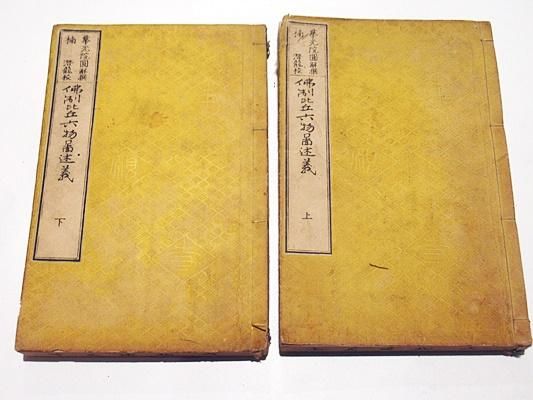 華光院圓解撰
楠 潛龍校
佛制比丘六物啚述義
上
華光院圓解撰
楠 潛龍校
佛制比丘六物啚述義
下